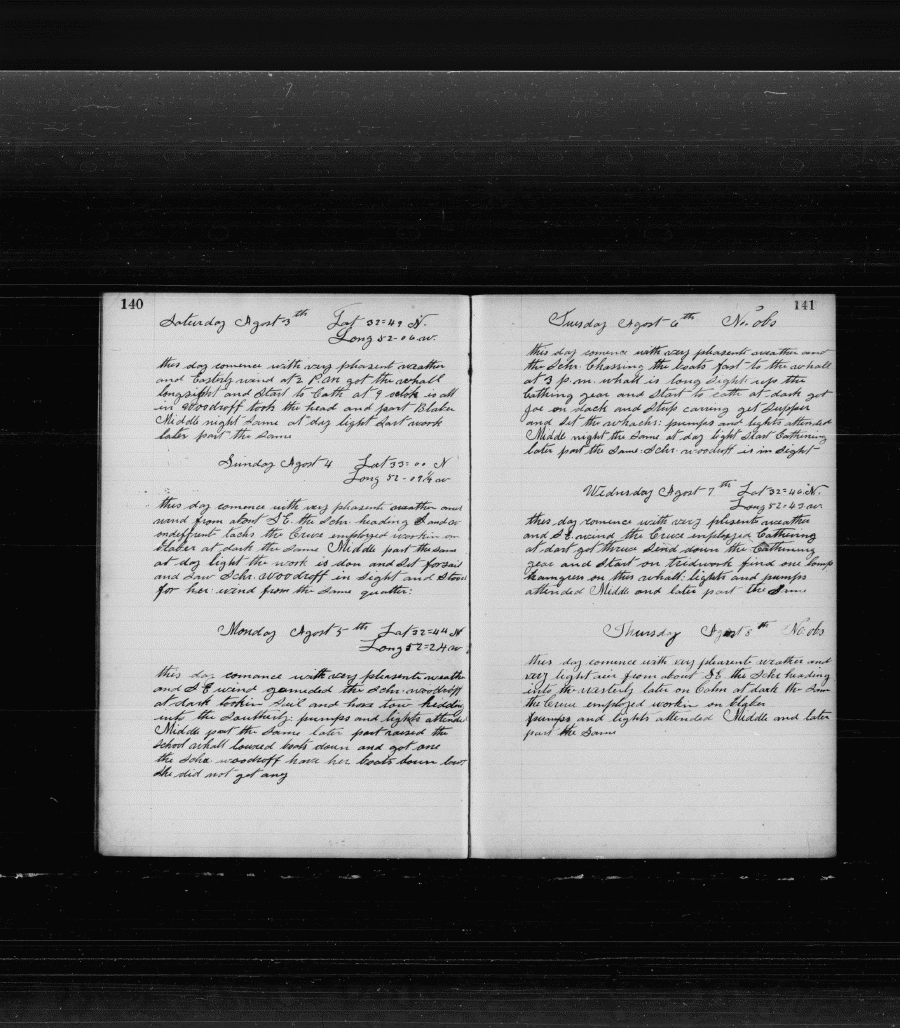 140
Saturday Agost 3th Lat 32=49 N.
Long 52-06 W.
this day comence with very pleasent weather
and Easterly wind at 2 P.M got the whall
longsight and Start to Cath at 9 oclok is all
in Woodroff took the head and part Blaber
Middle night Same at day light Sart work
later part the Same
Sunday Agost 4 Lat 33=00 N
Long 52-09¼ W
this day comence with very plesents weather and
wind from about S E. the Schr heading
indefrunt tachs the Cruce employed workin on
Blaber at dark the Same Middle part the Same
at day light the work is don and Set forsail
and Saw Schr. Woodroff in Sight and Stood
for her: wind from the Same quatter:
Monday Agost 5th Lat 32=44 N
Long 52=24 W
this day comance with very pleasents weather
and S E wind gamded the Schr. Woodroff
at dark tookin Sail and haer tow hedding
into the Southerly: pumps and lights attended
Middle part the Same later part raised the
School whall lowred boats down and got one
the Schr Woodroff have her boats down low
She did not get any
141
Tuesday Agost 6th No. obs
this day comence with very pleasents weather and
the Schr. Chassing the boats fast to the whall
at 3 p.m. whall is long Sight: rip the
Cathing gear and Start to cath at dark got
Joe on dack and Stop carving get Supper
and Set the whachs: pumps and lights attended
Middle night the Same at day light Start Cathening
later part the Same: Schr. Woodroff is in Sight
Wednsday Agost 7th Lat 32=46 N.
Long 52=43 W.
this day comence with very plisents weather
and S E. wind the Cruce employed Cathering
at dart got thrue Send down the Cathening
gear and Start on triedwork find one bomp
hamgren on this whall: lights and pumps
attended Middle and later part the Same
Thursday Agost 8th No. obs
this day comence with very pleasents weather and
very light air from about S E. the Schr heading
into the Westerly later on Calm at dark the Same
the Cruce employed workin on
pumps and lights attended Middle and later
part the Same